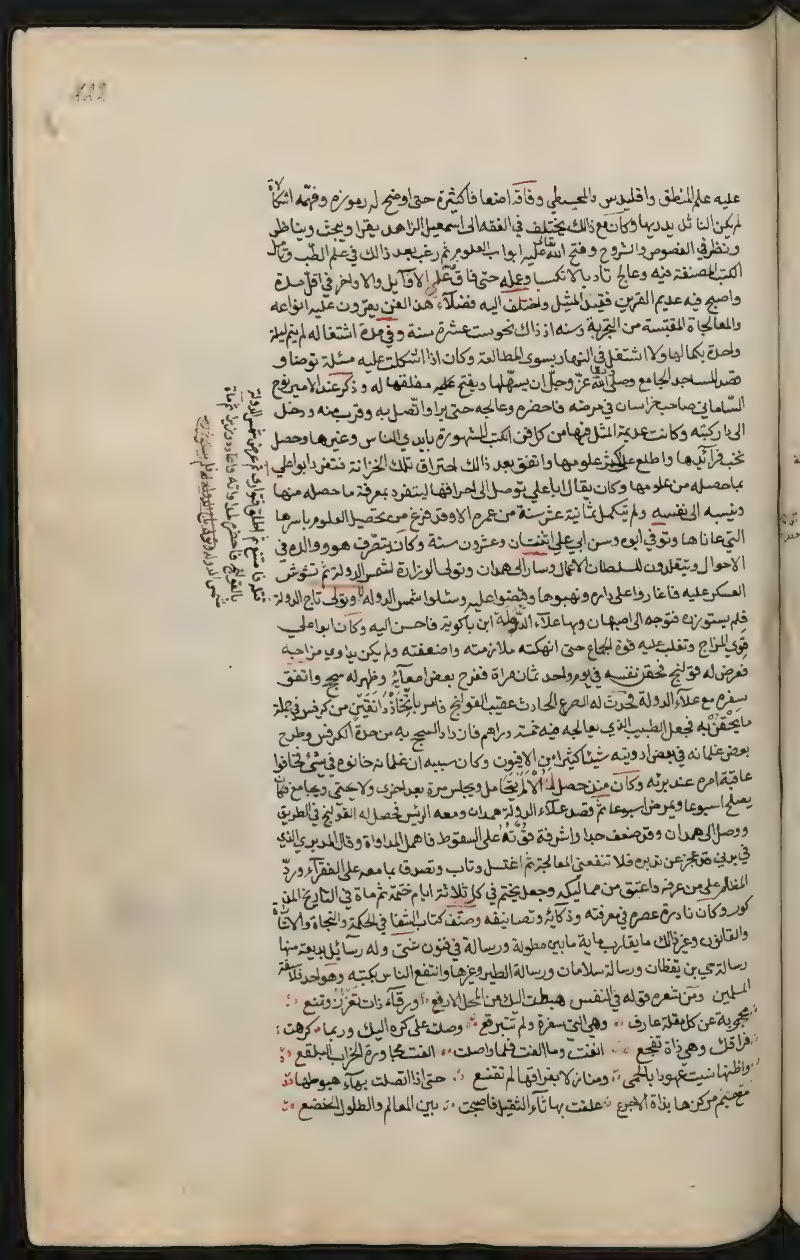 122
عليه علم المنطق واقليدس والمجسطي وفاقه اضعافا كثيرة حتى اوضح له رموزه وفهمه اشكالاة
لم يكن الناتلي يدريها وكان مع ذالك يختلف في الفقه الى اسمعيل الزاهد يقرا ويبحث ويناظر
ونظر في الفصوص والشروح وفتح الله تعالى عليه ابواب العلوم ثم رغب بعد ذالك في علم الطب وتامل
الكتب المصنفة فيه وعالج تادبا لا تكسبا وعلمه حتى فاق فيه على الاوايل والاواخر في اقل مدة
واصبح فيه عديم القرين فقيد المثل واختلف اليه فضلاء هذا الفن يقرون عليه انواعه
والمعالجاة المقتبسة من التجربة وسنه اذ ذاك نحو ست عشرة سنة وفي مدة اشتغاله لم ينم ليلة
واحدة بكمالها ولا اشتغل في النهار بسوى المطالعة وكان اذا اشكلت عليه مسئلة توضا و
قصد المسجد الجامع وصلى ودعا الله عز وجل ان يسهلها ويفتح عليه مغلقها له وذكر عند الامير نوح
الساماني صاحب خراسان في مرضه فاحضره وعالجه حتى برا واتصل به وقرب منه ودخل
الى دار كتبه وكانت عديمة المثل فيها من كل فن الكتب المشهورة بايدي الناس وغيرها وحصل
نخب فرآئدها واطلع على اكثر علومها واتفق بعد ذالك احتراق تلك الخزانة فتفرد ابو علي
بما حصله من علومها وكان يقال ابا علي توصل الى احراقها لينفرد بمعرفة ما حصله منها
وينسبه الى نفسه ولم يتكمل ثمانية عشر سنة من عمره الا وقد فرغ من تحصيل العلوم باسرها
التي عاناها وتوفي ابوه وسن ابي علي اثنتان وعشرون سنة وكان يتصرف هو ووالده في
الاحوال ويتقلدون للسلطان الاعمال وسار الى همدان وتولى الوزارة لشمس الدولة ثم تشوش
العسكر عليه فاغاروا على داره ونهبوها وقبضوا عليه وسئلوا شمس الدولة وتولى تاج الدولة
فلم يستوزره فتوجه الى اصبهان وبها علاء الدولة ابن باكويه فاحسن اليه وكان ابو علي
قوي المزاج وتغلب عليه قوة الجماع حتى انهكته ملازمته واضعفته ولم يكن يداوي مزاجه
فعرض له قولنج فحقن نفسه في يوم واحد ثمان مراة فقرح بعض امعآئه وظهر له سحج واتفق
سفره مع علاء الدولة فحدث له الصرع الحادث عقيب القولنج فامر باتخاذ دانقين من كرفس في جملة
ما يحقن به فجعل الطبيب الذي يعالجه فيه خمسة دراهم فازداد السحج به من حدة الكرفس وطرح
بعض غلمانه في بعض ادويته شيئا كثيرا من الافيون وكان سببه ان غلمانه خانوه في شيئ فخافوا
عاقبة امره عند برئه وكان منذ حصل له الالم يتحامل ويجلس مرة بعد اخرى ولا يحتمي ويجامع فكان
يصلح اسبوعا ويمرض اسبوعا ثم قصد علاء الدولة همدان ومعه الرئيس فحصل له القولنج في الطريق
ووصل الى همدان وقد ضعف جدا واشرفة قوته على السقوط فاهمل المداواة وقال المدبر الذي
في بدني قد عجز عن تدبيره فلا تنفعني المعالجة ثم اغتسل وتاب وتصدق بما معه على الفقرآء ورد
المظالم على من عرفه واعتق من مماليكه وجعل يختم في كل ثلاثة ايام ختمة ثم ماة في التاريخ المذ
كور وكان نادرة عصره في معرفته وذكائه وتصانيفه وصنف كتاب الشفا في الحكمة والنجاة والاشاراة
والقانون وغير ذالك ما يقارب ماية ما بين مطولة ورسالة في فنون شتى وله رسآئل بديعة منها
رسالة حي بن يقظان ورسالة سلامان ورسالة الطير وغيرها وانتفع الناس بكتبه وهو احد فلاسفة
المسلمين ومن شعره قوله في النفس هبطت اليك من المحل الارفع ورقآء ذات تعزز وتمنع
محجوبة عن كل مقلة عارف وهي التي سفرة ولم تتبرقع وصلت على كره اليك وربما كرهت
فراقك وهي ذاة تفجع انفت وما الفت فلما واصلت الفت مجاورة الخراب البلقع
واظنها نسيت عهودا بالحمى ومنازلا بفراقها لم تقنع حتى اذا اتصلت بهآء هبوطها
من ميم مركزها بذاة الاجرع علقت بها ثآء الثقيل فاصبحت بين المعالم والطلول الخضع
قتله فامتنع ثم اطلق فتوارى ثم مرض شمس الدولة
بالقولنج فاحضره لمداواته واعاده وزيرا ثم ماة
شمس الدولة